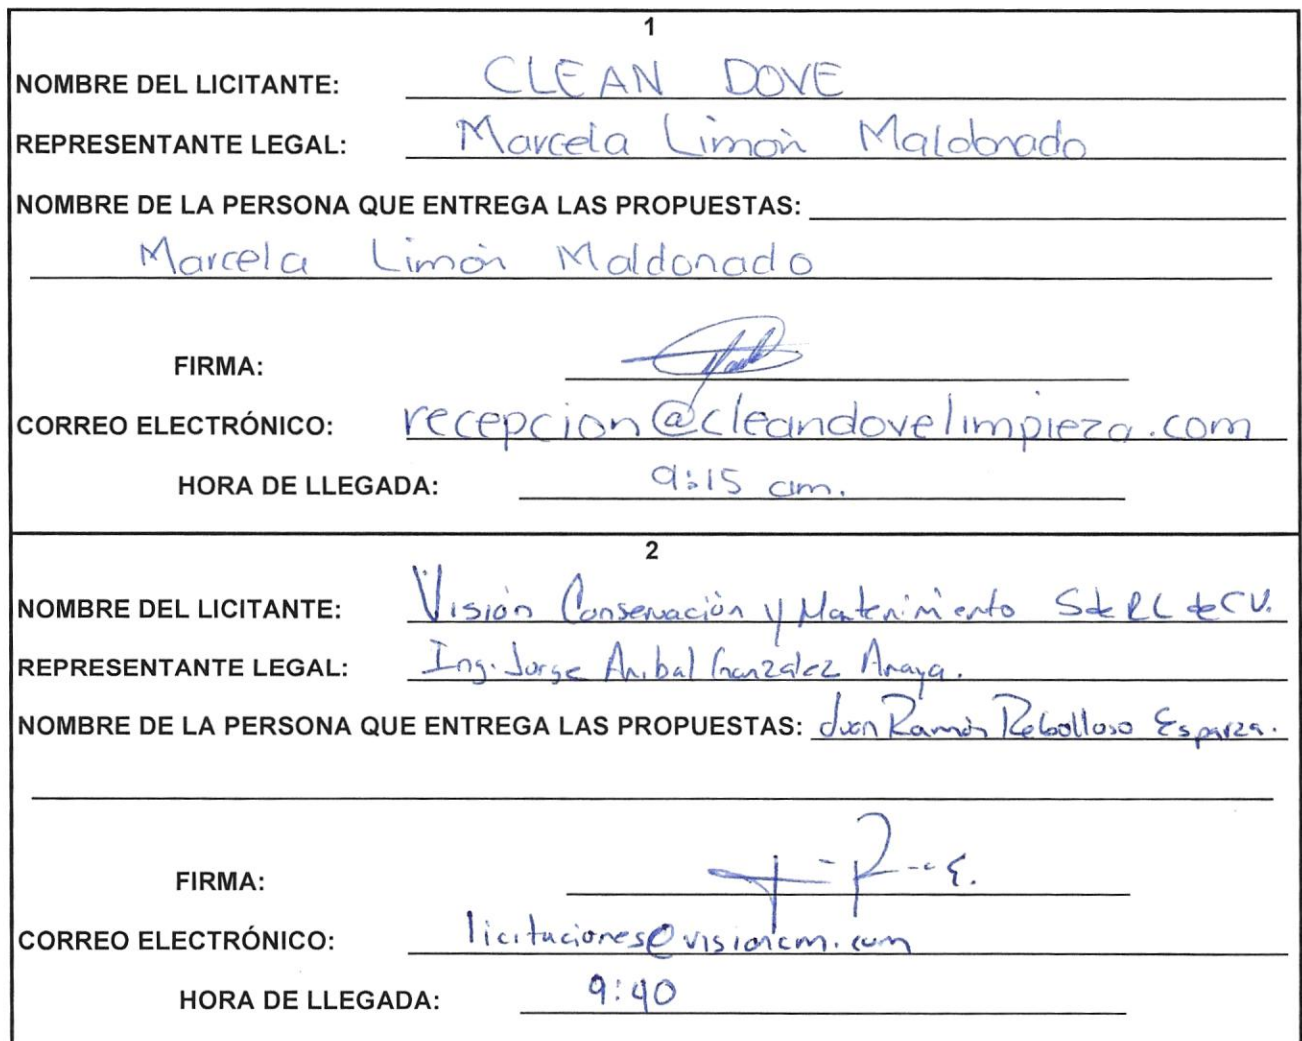 1
NOMBRE DEL LICITANTE: CLEAN DOVE
REPRESENTANTE LEGAL: Marcela Limón Maldonado
NOMBRE DE LA PERSONA QUE ENTREGA LAS PROPUESTAS:
Marcela Limón Maldonado
FIRMA:
CORREO ELECTRÓNICO: recepcion@cleandovelimpieza.com
HORA DE LLEGADA: 9:15 am.
2
NOMBRE DEL LICITANTE: Visión Conservación y Mantenimiento S de RL de CV.
REPRESENTANTE LEGAL: Ing. Jorge Anibal González Anaya.
NOMBRE DE LA PERSONA QUE ENTREGA LAS PROPUESTAS: Juan Ramón Rebolloso Esparza.
FIRMA:
CORREO ELECTRÓNICO: licitaciones@visioncm.com
HORA DE LLEGADA: 9:40